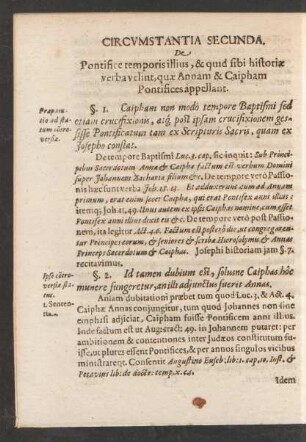 CIRCVMSTANTIA SECUNDA.
De
Pontifice temporis illius, & quid sibi historiæ
verba velint, quæ Annam & Caipham
Pontifices appellant.
Præparatio ad statum
controversiæ.
§. 1. Caipham non modò tempore Baptismi sed
etiam crucifixionis, atq; post ipsam crucifixionem gessisse
Pontificatum tam ex Scripturis Sacris, quam ex
Josepho constat.
De tempore Baptismi Luc. 3. cap, sic inquit: Sub Principibus
Sacerdotum Anna & Caipha factum est verbum Domini
super Johannem Zachariæ filium &c. De tempore verò Passionis
hæc sunt verba Joh. 18. 13. Et adduxerunt eum ad Annam
primum, erat enim socer Caiphæ, qui erat Pontifex anni illius &
itemq; Joh. 11, 49. Unus autem ex ipsis Caiphas nomine, cum esset
Pontifex anni illius dixit eu & c. De tempore verò post Passionem,
ita legitur Act. 4. 6. Factum est postero die, ut congregarentur
Principes eorum, & seniores & Scribæ Hierosolymis & Annas
Princeps Sacerdotum & Caiphas. Josephi historiam jam §. 7.
recitavimus.
Ipse controversiæ
status.
1. Sententia.
§. 2. Id tamen dubium est, solusne Caiphas hôc
munere fungeretur, an illi adjunctus fuerit Annas.
Ansam dubitationi præbet tum quod Luc. 3. & Act. 4.
Caiphæ Annas conjungitur, tum quod Johannes non sine
emphasi adjiciat, Caipham fuisse Pontificem anni illius.
Inde factum est ut August: tract: 49. in Johannem putaret: per
ambitionem & contentiones inter Judæos constitutum fuisse,
ut plures essent Pontifices, & per annos singulos vicibus
ministrarent. Consentit Augustino Euseb; lib: 1. cap, 10. hist. &
Petavius lib: de doctr: temp. x. 62.
Idem